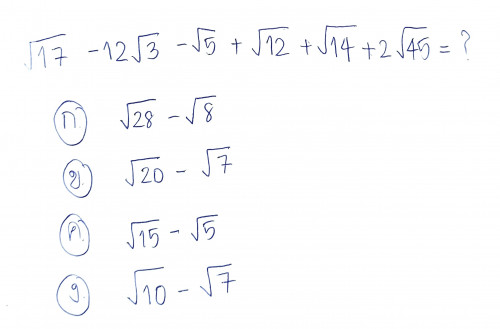 √17 - 12√3 - √5 + √12 + √14 + 2√45 = ?
ก √28 - √8
ข √20 - √7
ค √15 - √5
ง √10 - √7